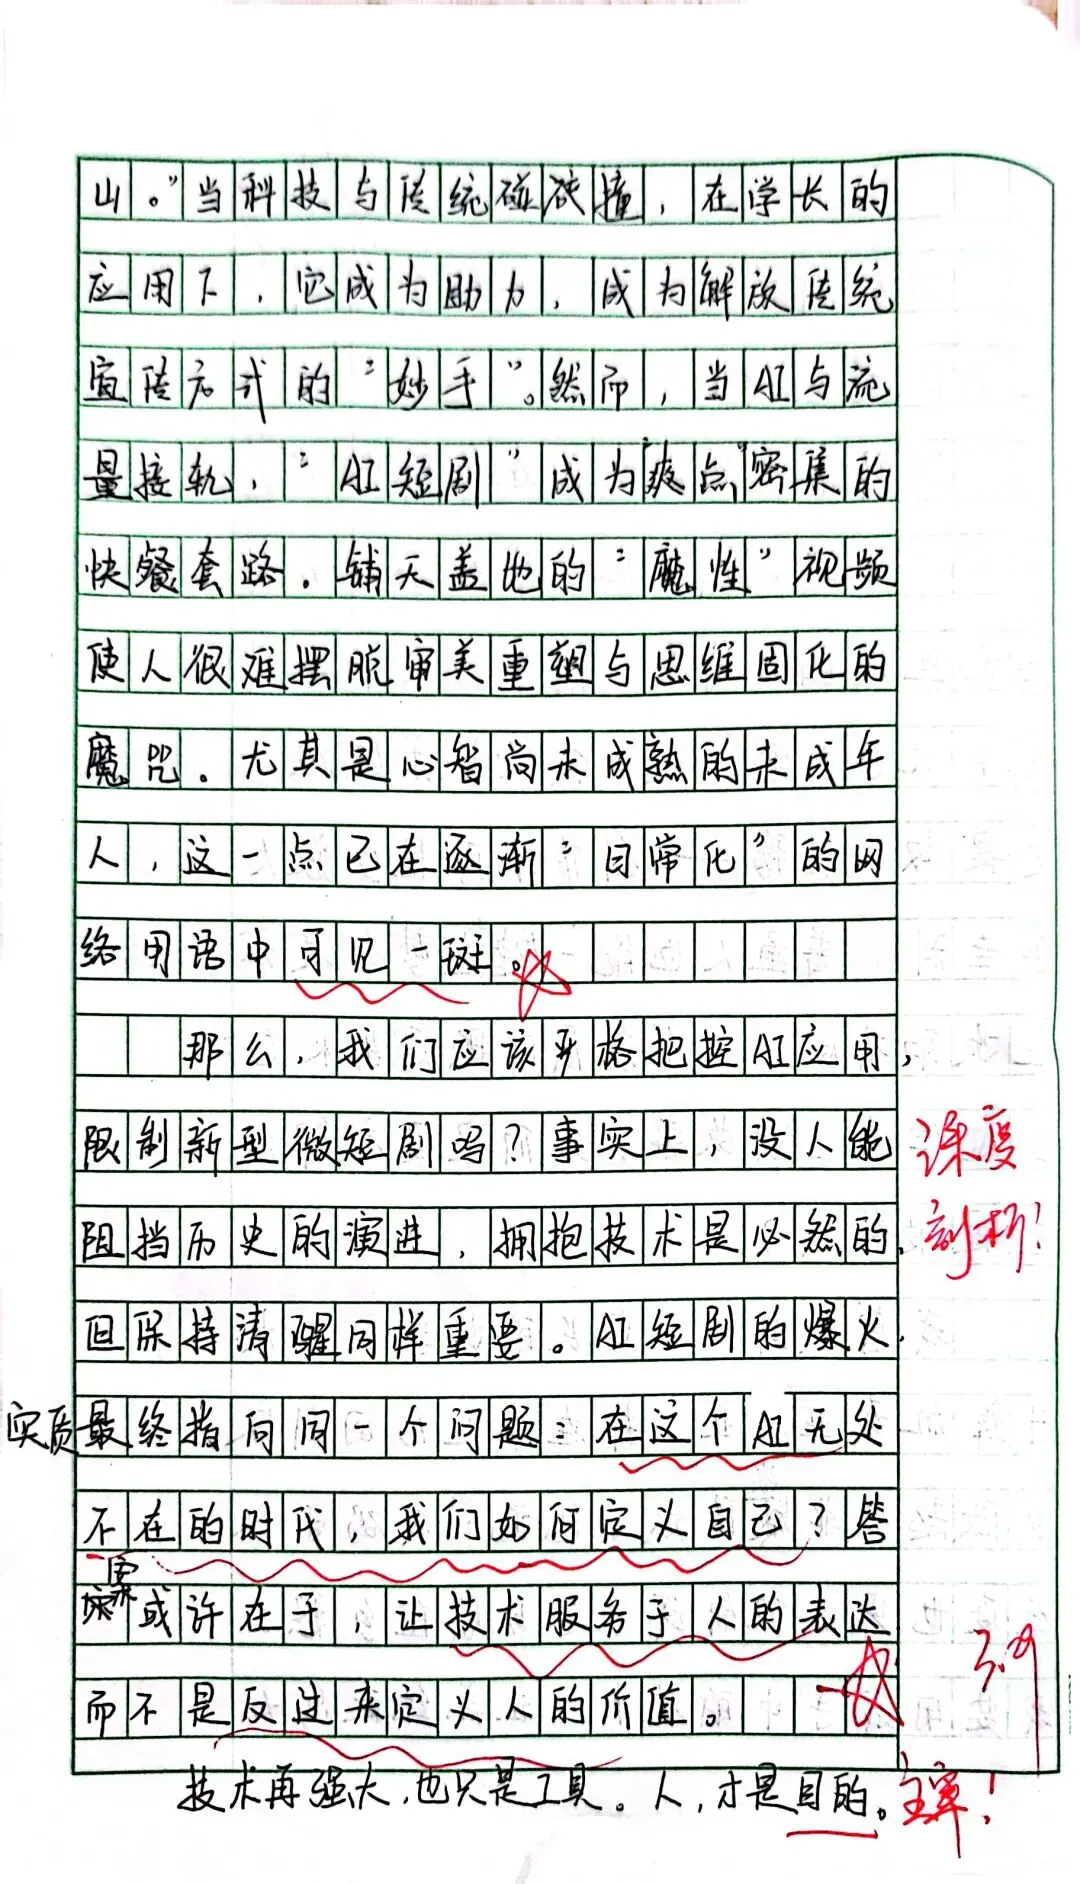 山。”当科技与传统碰碰撞，在学长的
应用下，它成为助力，成为解放传统
宣传方式的“妙手”。然而，当AI与流
量接轨，“AI短剧”成为“爽点”密集的
快餐套路。铺天盖地的“魔性”视频
使人很难摆脱审美重塑与思维固化的
魔咒。尤其是心智尚未成熟的未成年
人，这一点已在逐渐“日常化”的网
络用语中可见一斑。
那么，我们应该严格把控AI应用，
限制新型微短剧吗？事实上，没人能
阻挡历史的演进，拥抱技术是必然的，
但保持清醒同样重要。AI短剧的爆火，
实质最终指向同一个问题：在这个AI无处
不在的时代，我们如何定义自己？答
案或许在于，让技术服务于人的表达
而不是反过来定义人的价值。
技术再强大，也只是工具。人，才是目的。
深度
剖析！
主宰！